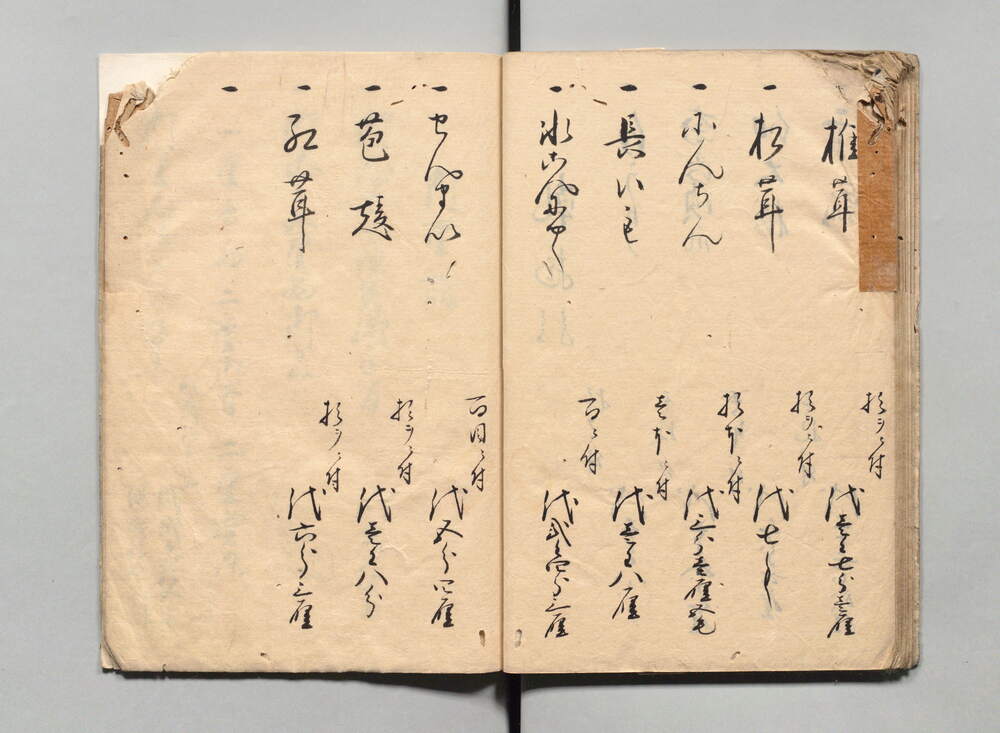 椎茸
拾ヲニ付
代壱匁七分壱厘
一 松茸
拾ヲニ付
代七分
一 ふんちん
拾本ニ付
代三分壱厘五毛
一 長いも
壱本ニ付
代壱匁八厘
一 氷こんにやく
百ニ付
代弐匁四分三厘
一 せんまい
百目ニ付
代五分四厘
一
拾ヲニ付
代壱匁八分
一 紅茸
拾ヲニ付
代六分三厘
一